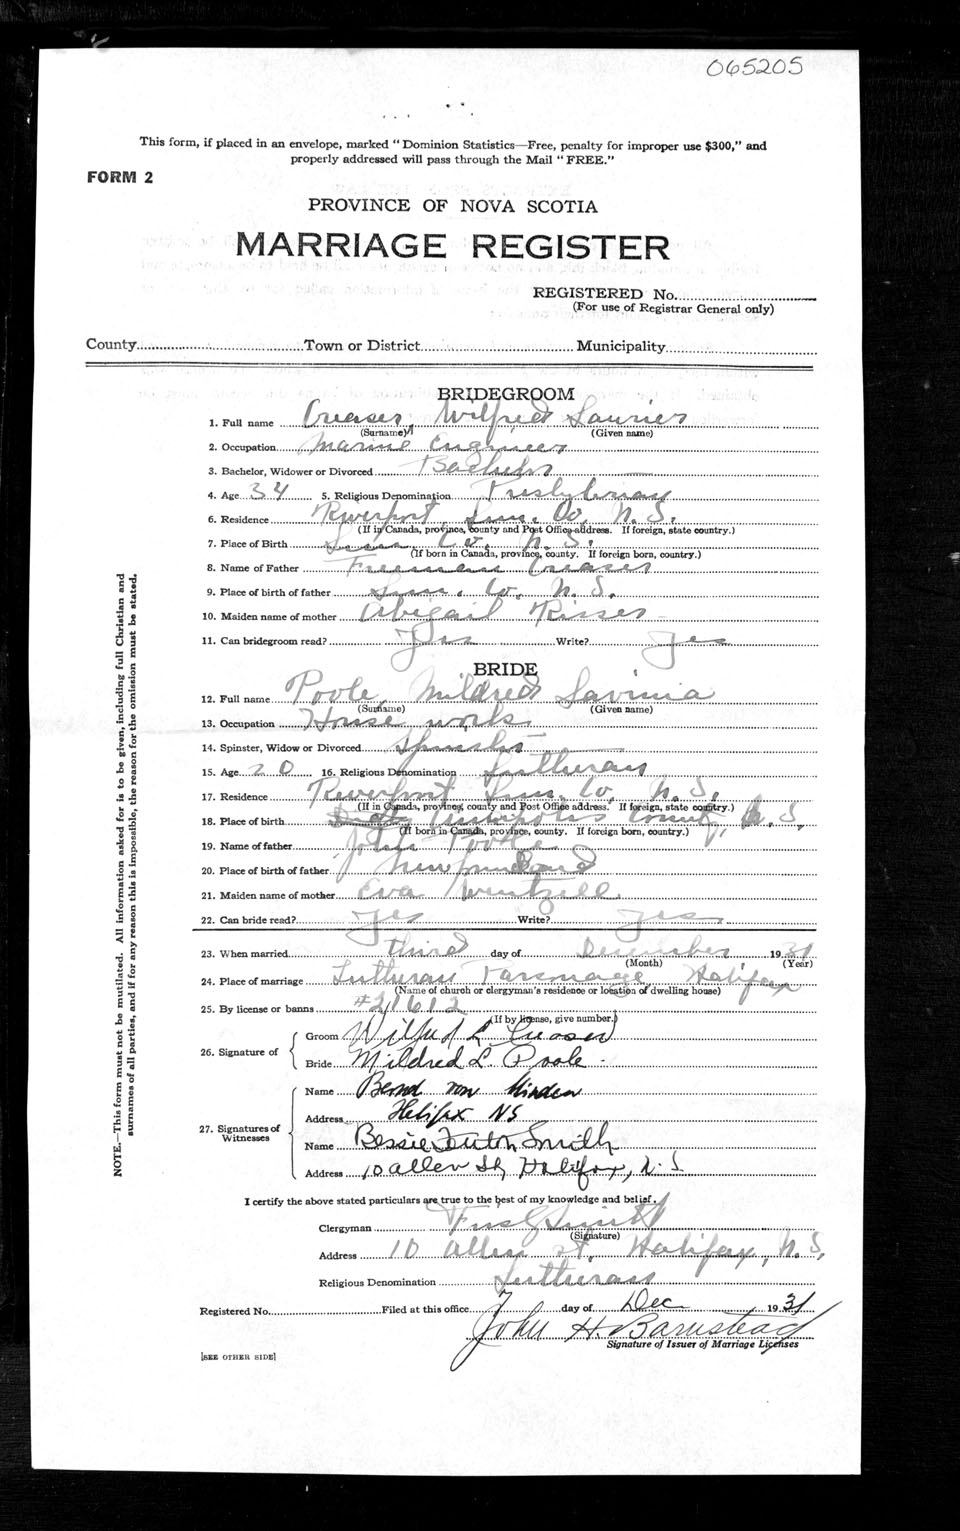 065205
This form, if placed in an envelope, marked "Dominion Statistics—Free, penalty for improper use $300," and
properly addressed will pass through the Mail "FREE."
FORM 2
PROVINCE OF NOVA SCOTIA
MARRIAGE REGISTER
REGISTERED No.
(For use of Registrar General only)
County Town or District Municipality
BRIDEGROOM
1. Full name Creaser, Wilfred Laurier
(Surname) (Given name)
2. Occupation Marine Engineer
3. Bachelor, Widower or Divorced Bachelor
4. Age 34 5. Religious Denomination Presbyterian
6. Residence Riverport Lun. Co. N. S.
(If in Canada, province, county and Post Office address. If foreign, state country.)
7. Place of Birth Lun Co. N. S.
(If born in Canada, province, county. If foreign born, country.)
8. Name of Father Freeman Creaser
9. Place of birth of father Lun. Co. N. S.
10. Maiden name of mother Abigail Risser
11. Can bridegroom read? Yes Write? Yes
BRIDE
12. Full name Poole Mildred Lavinia
(Surname) (Given name)
13. Occupation House work
14. Spinster, Widow or Divorced Spinster
15. Age 20 16. Religious Denomination Lutheran
17. Residence Riverport Lun. Co. N. S.
(If in Canada, province, county and Post Office address. If foreign, state country.)
18. Place of birth Annapolis County, N. S.
(If born in Canada, province, county. If foreign born, country.)
19. Name of father John Poole
20. Place of birth of father Newfoundland
21. Maiden name of mother Eva Wentzell
22. Can bride read? Yes Write? Yes
23. When married third day of December 1931
(Month) (Year)
24. Place of marriage Lutheran Parsonage Halifax
(Name of church or clergyman's residence or location of dwelling house)
25. By license or banns #21612
(If by license, give number.)
26. Signature of
Groom Wilfred L. Creaser
Bride Mildred L. Poole
27. Signatures of Witnesses
Name Bernd von Minden
Address Halifax NS
Name Bessie Smith
Address 10 Allen St, Halifax, N. S
I certify the above stated particulars are true to the best of my knowledge and belief.
Clergyman Smith
(Signature)
Address 10 Allen St. Halifax, N. S.
Religious Denomination Lutheran
Registered No. Filed at this office 7 day of Dec 1931
John H. Barnstead
Signature of Issuer of Marriage Licenses
[SEE OTHER SIDE]
NOTE.—This form must not be mutilated. All information asked for is to be given, including full Christian and
surnames of all parties, and if for any reason this is impossible, the reason for the omission must be stated.